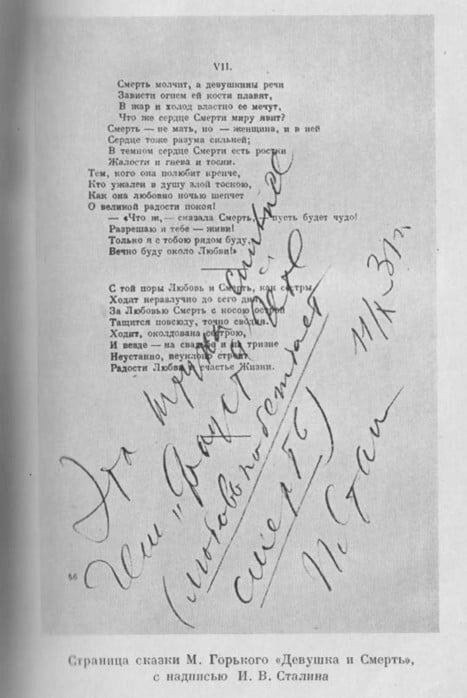 VII.
Смерть молчит, а девушкины речи
Зависти огнем ей кости плавят,
В жар и холод властно ее мечут,
Что же сердце Смерти миру явит?
Смерть — не мать, но — женщина, и в ней
Сердце тоже разума сильней;
В темном сердце Смерти есть ростки
Жалости и гнева и тоски.
Тем, кого она полюбит крепче,
Кто ужален в душу злой тоскою,
Как она любовно ночью шепчет
О великой радости покоя!
— «Что ж, — сказала Смерть, — пусть будет чудо!
Разрешаю я тебе — живи!
Только я с тобою рядом буду,
Вечно буду около Любви!»
С той поры Любовь и Смерть, как сестры,
Ходят неразлучно до сего дня,
За Любовью Смерть с косою острой
Тащится повсюду, точно сводня.
Ходит, околдована сестрою,
И везде — на свадьбе и на тризне
Неустанно, неуклонно строит
Радости Любви и счастье Жизни.
Эта штука сильнее
чем „Фауст" Гете
(любовь побеждает
смерть)
И. Сталин
11/X–31 г.
Страница сказки М. Горького «Девушка и Смерть»,
с надписью И. В. Сталина